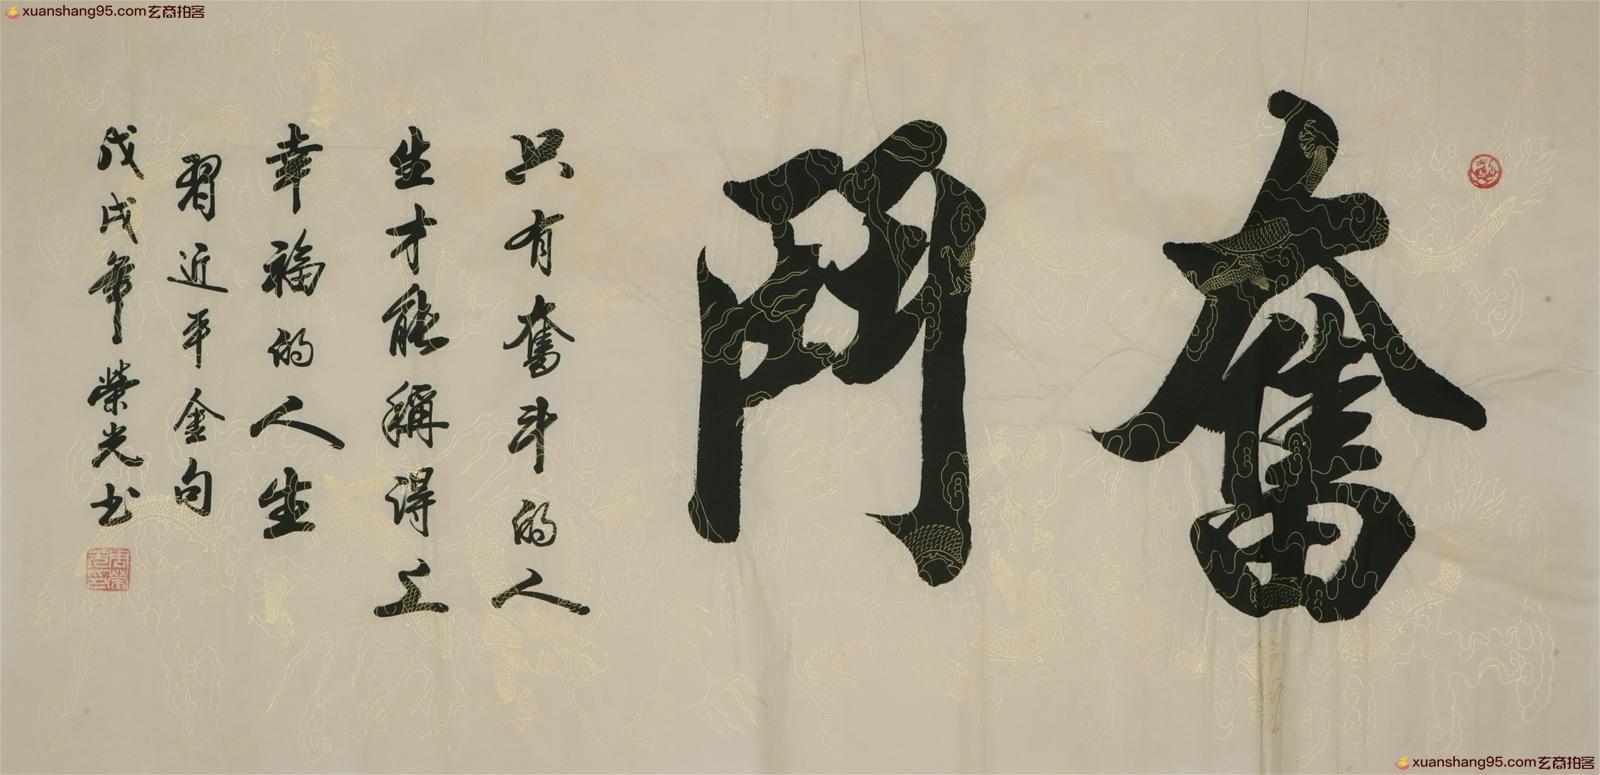 xuanshang95.com玄商拍客
奮鬥
只有奮斗的人
生才能稱得上
幸福的人生
習近平金句
戊戌年 榮光书
xuanshang95.com玄商拍客